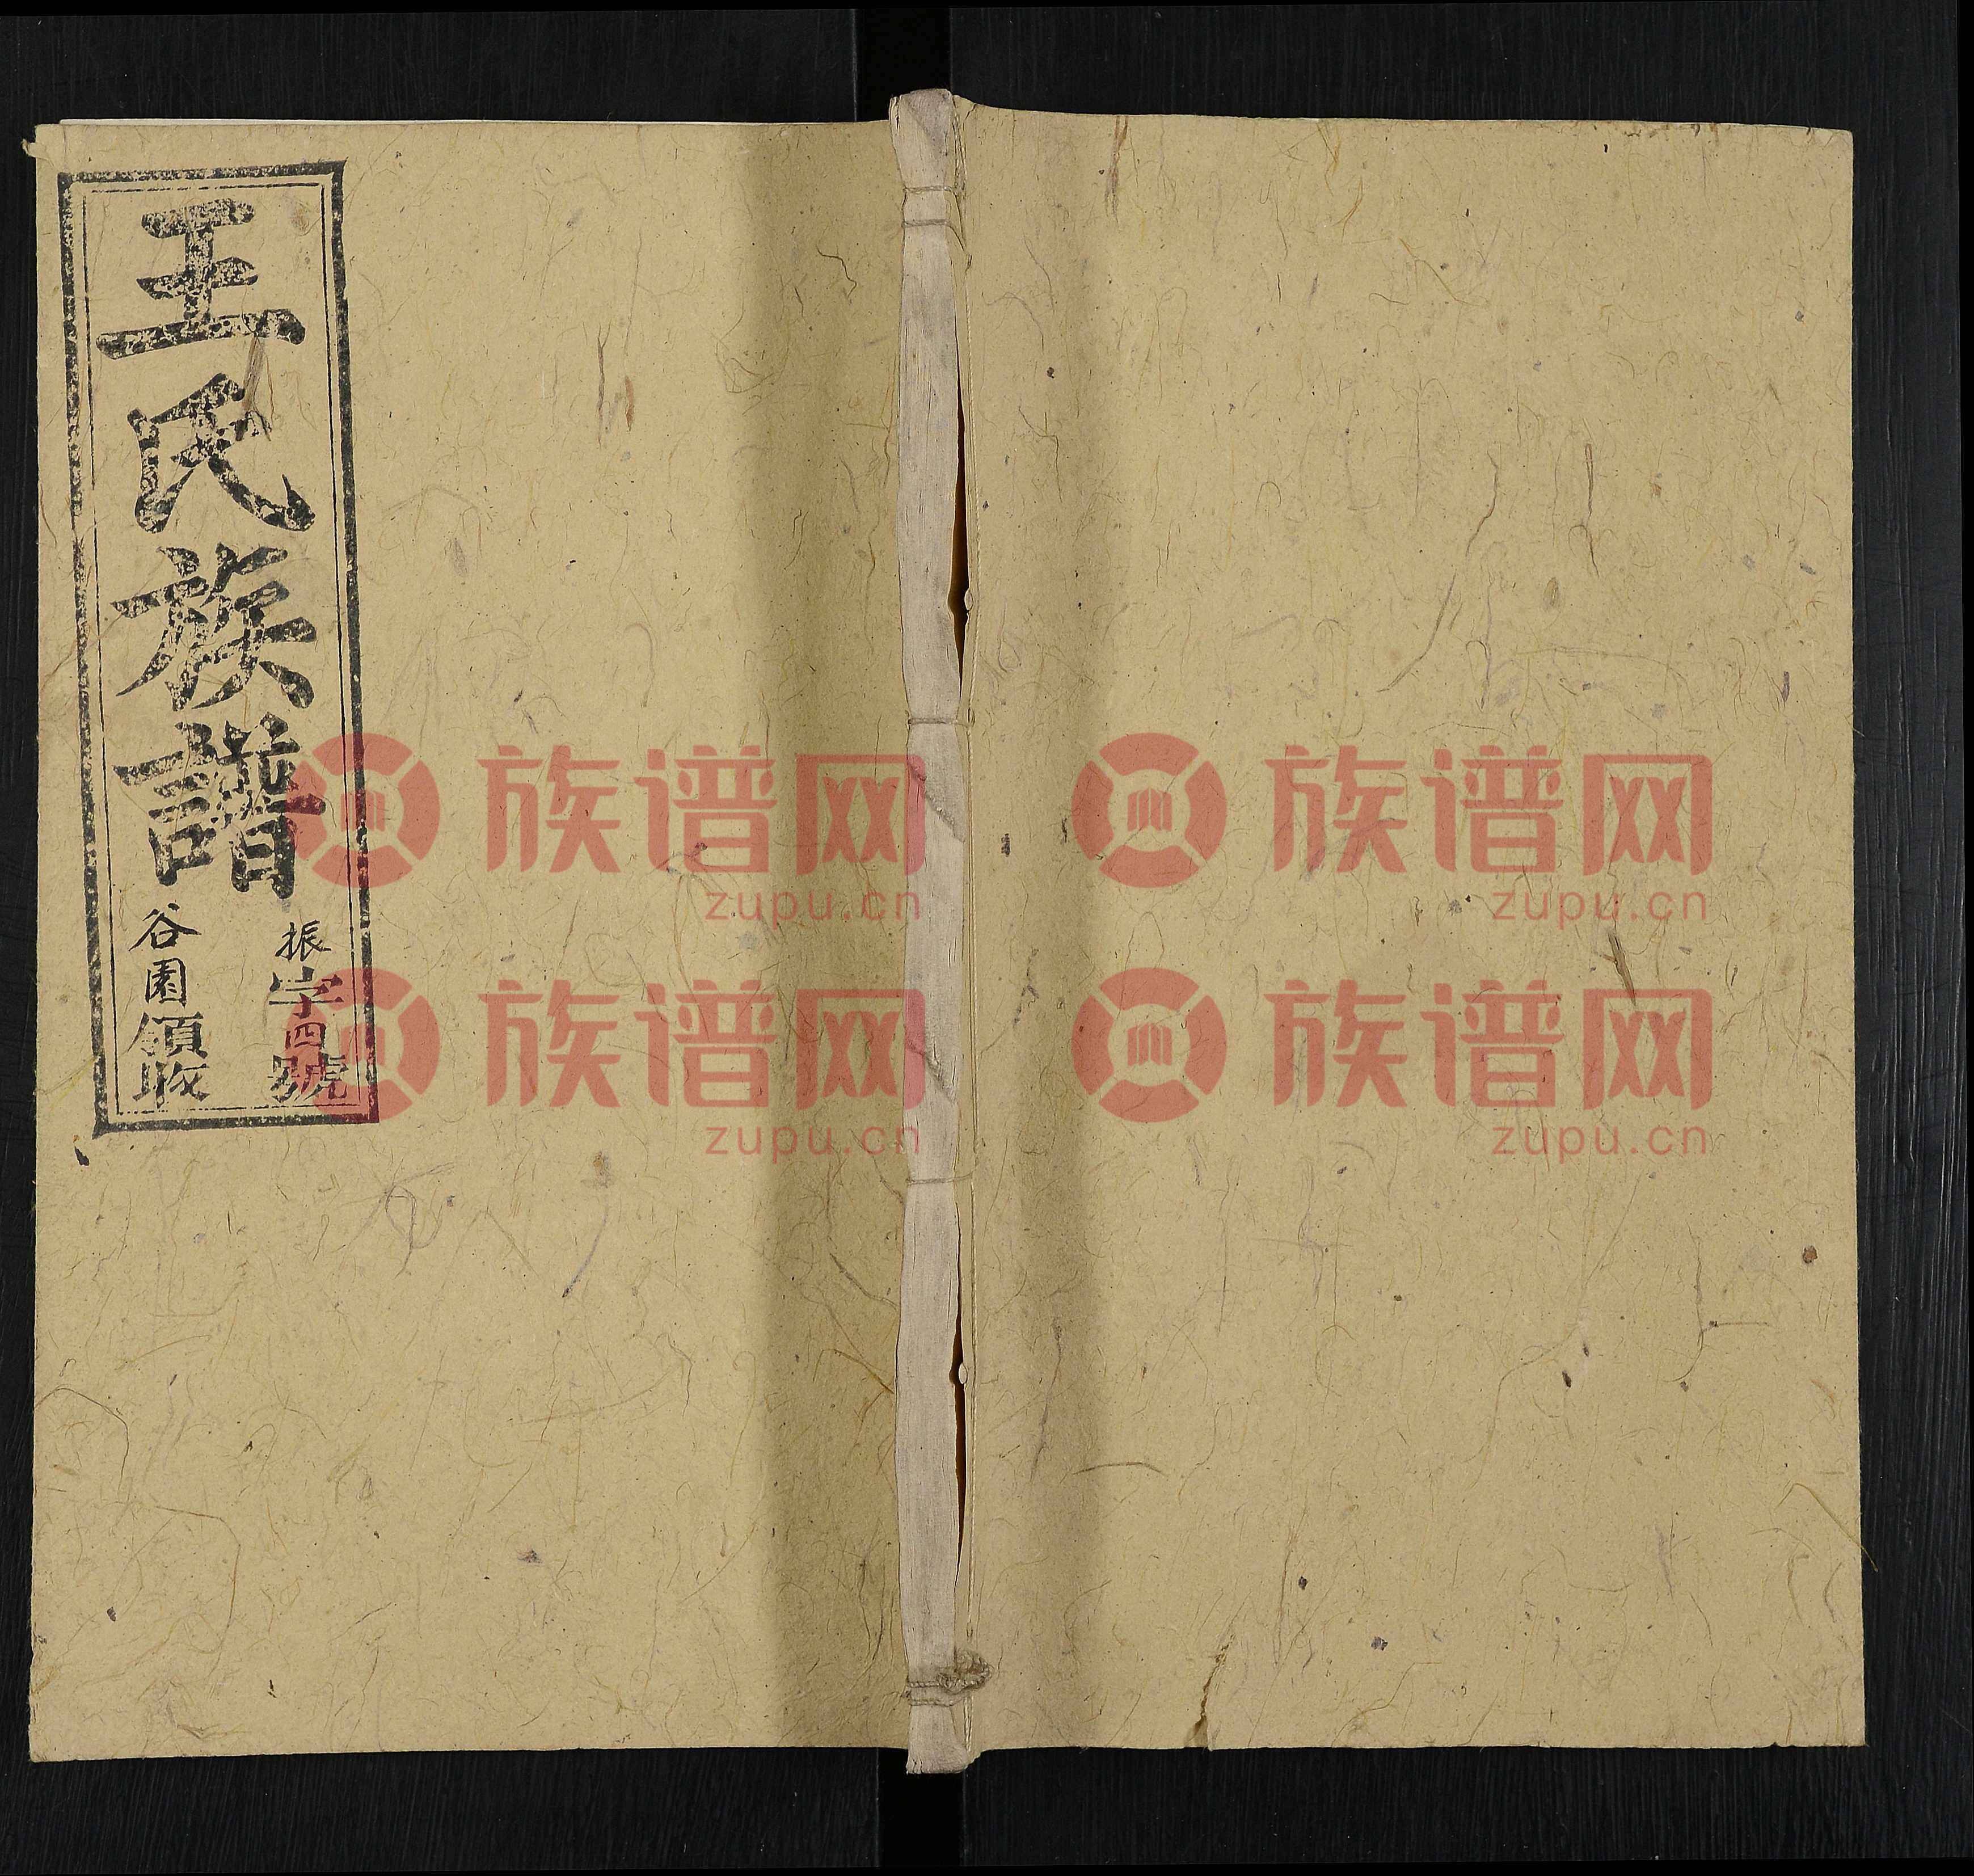 王氏族譜
振字四號
谷園領收
族谱网 族谱网
zupu.cn zupu.cn
族谱网 族谱网
zupu.cn zupu.cn